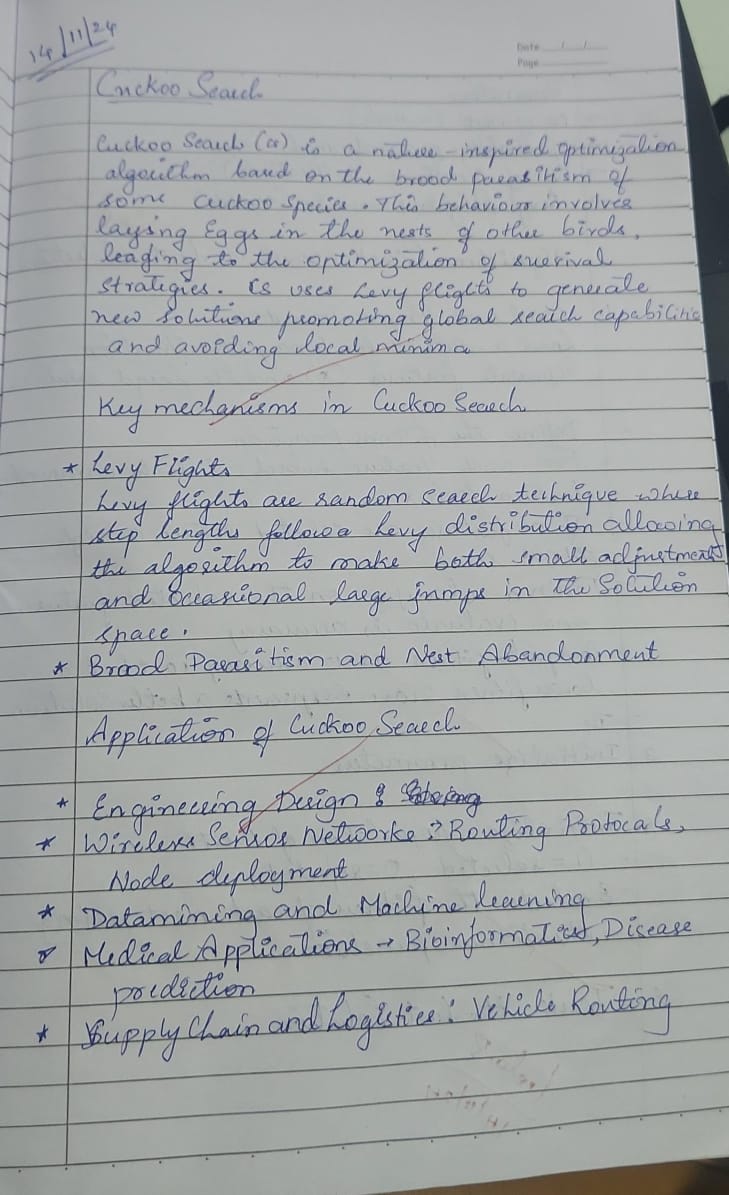 14/11/24
Date / /
Page
Cuckoo Search
Cuckoo Search (cs) is a nature-inspired optimization
algorithm based on the brood parasitism of
some cuckoo species. This behaviour involves
laying Eggs in the nests of other birds,
leading to the optimization of survival
strategies. CS uses Levy flights to generate
new solutions promoting global search capabilities
and avoiding local minima
Key mechanisms in Cuckoo Search
* Levy Flights
Levy flights are random search technique where
step lengths follow a Levy distribution allowing
the algorithm to make both small adjustments
and occasional large jumps in the Solution
space.
* Brood Parasitism and Nest Abandonment
Application of Cuckoo Search
* Engineering Design :
* Wireless Sensor Networks : Routing Protocals,
Node deployment
* Datamining and Machine learning :
* Medical Applications → Bioinformatics, Disease
prediction
* Supply Chain and Logistics : Vehicle Routing